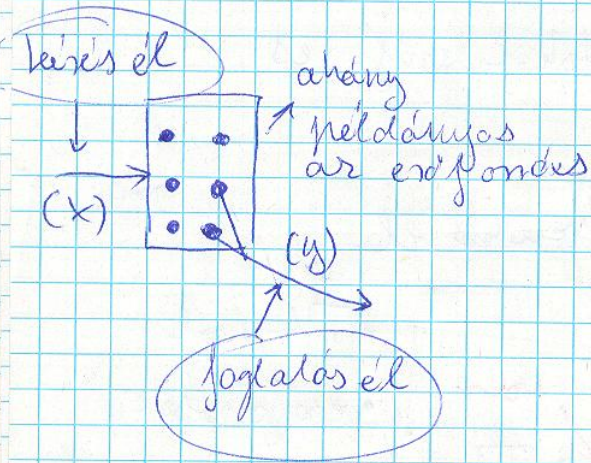 kérés él
ahány
példányos
az erőforrás
(x)
(y)
foglalás él